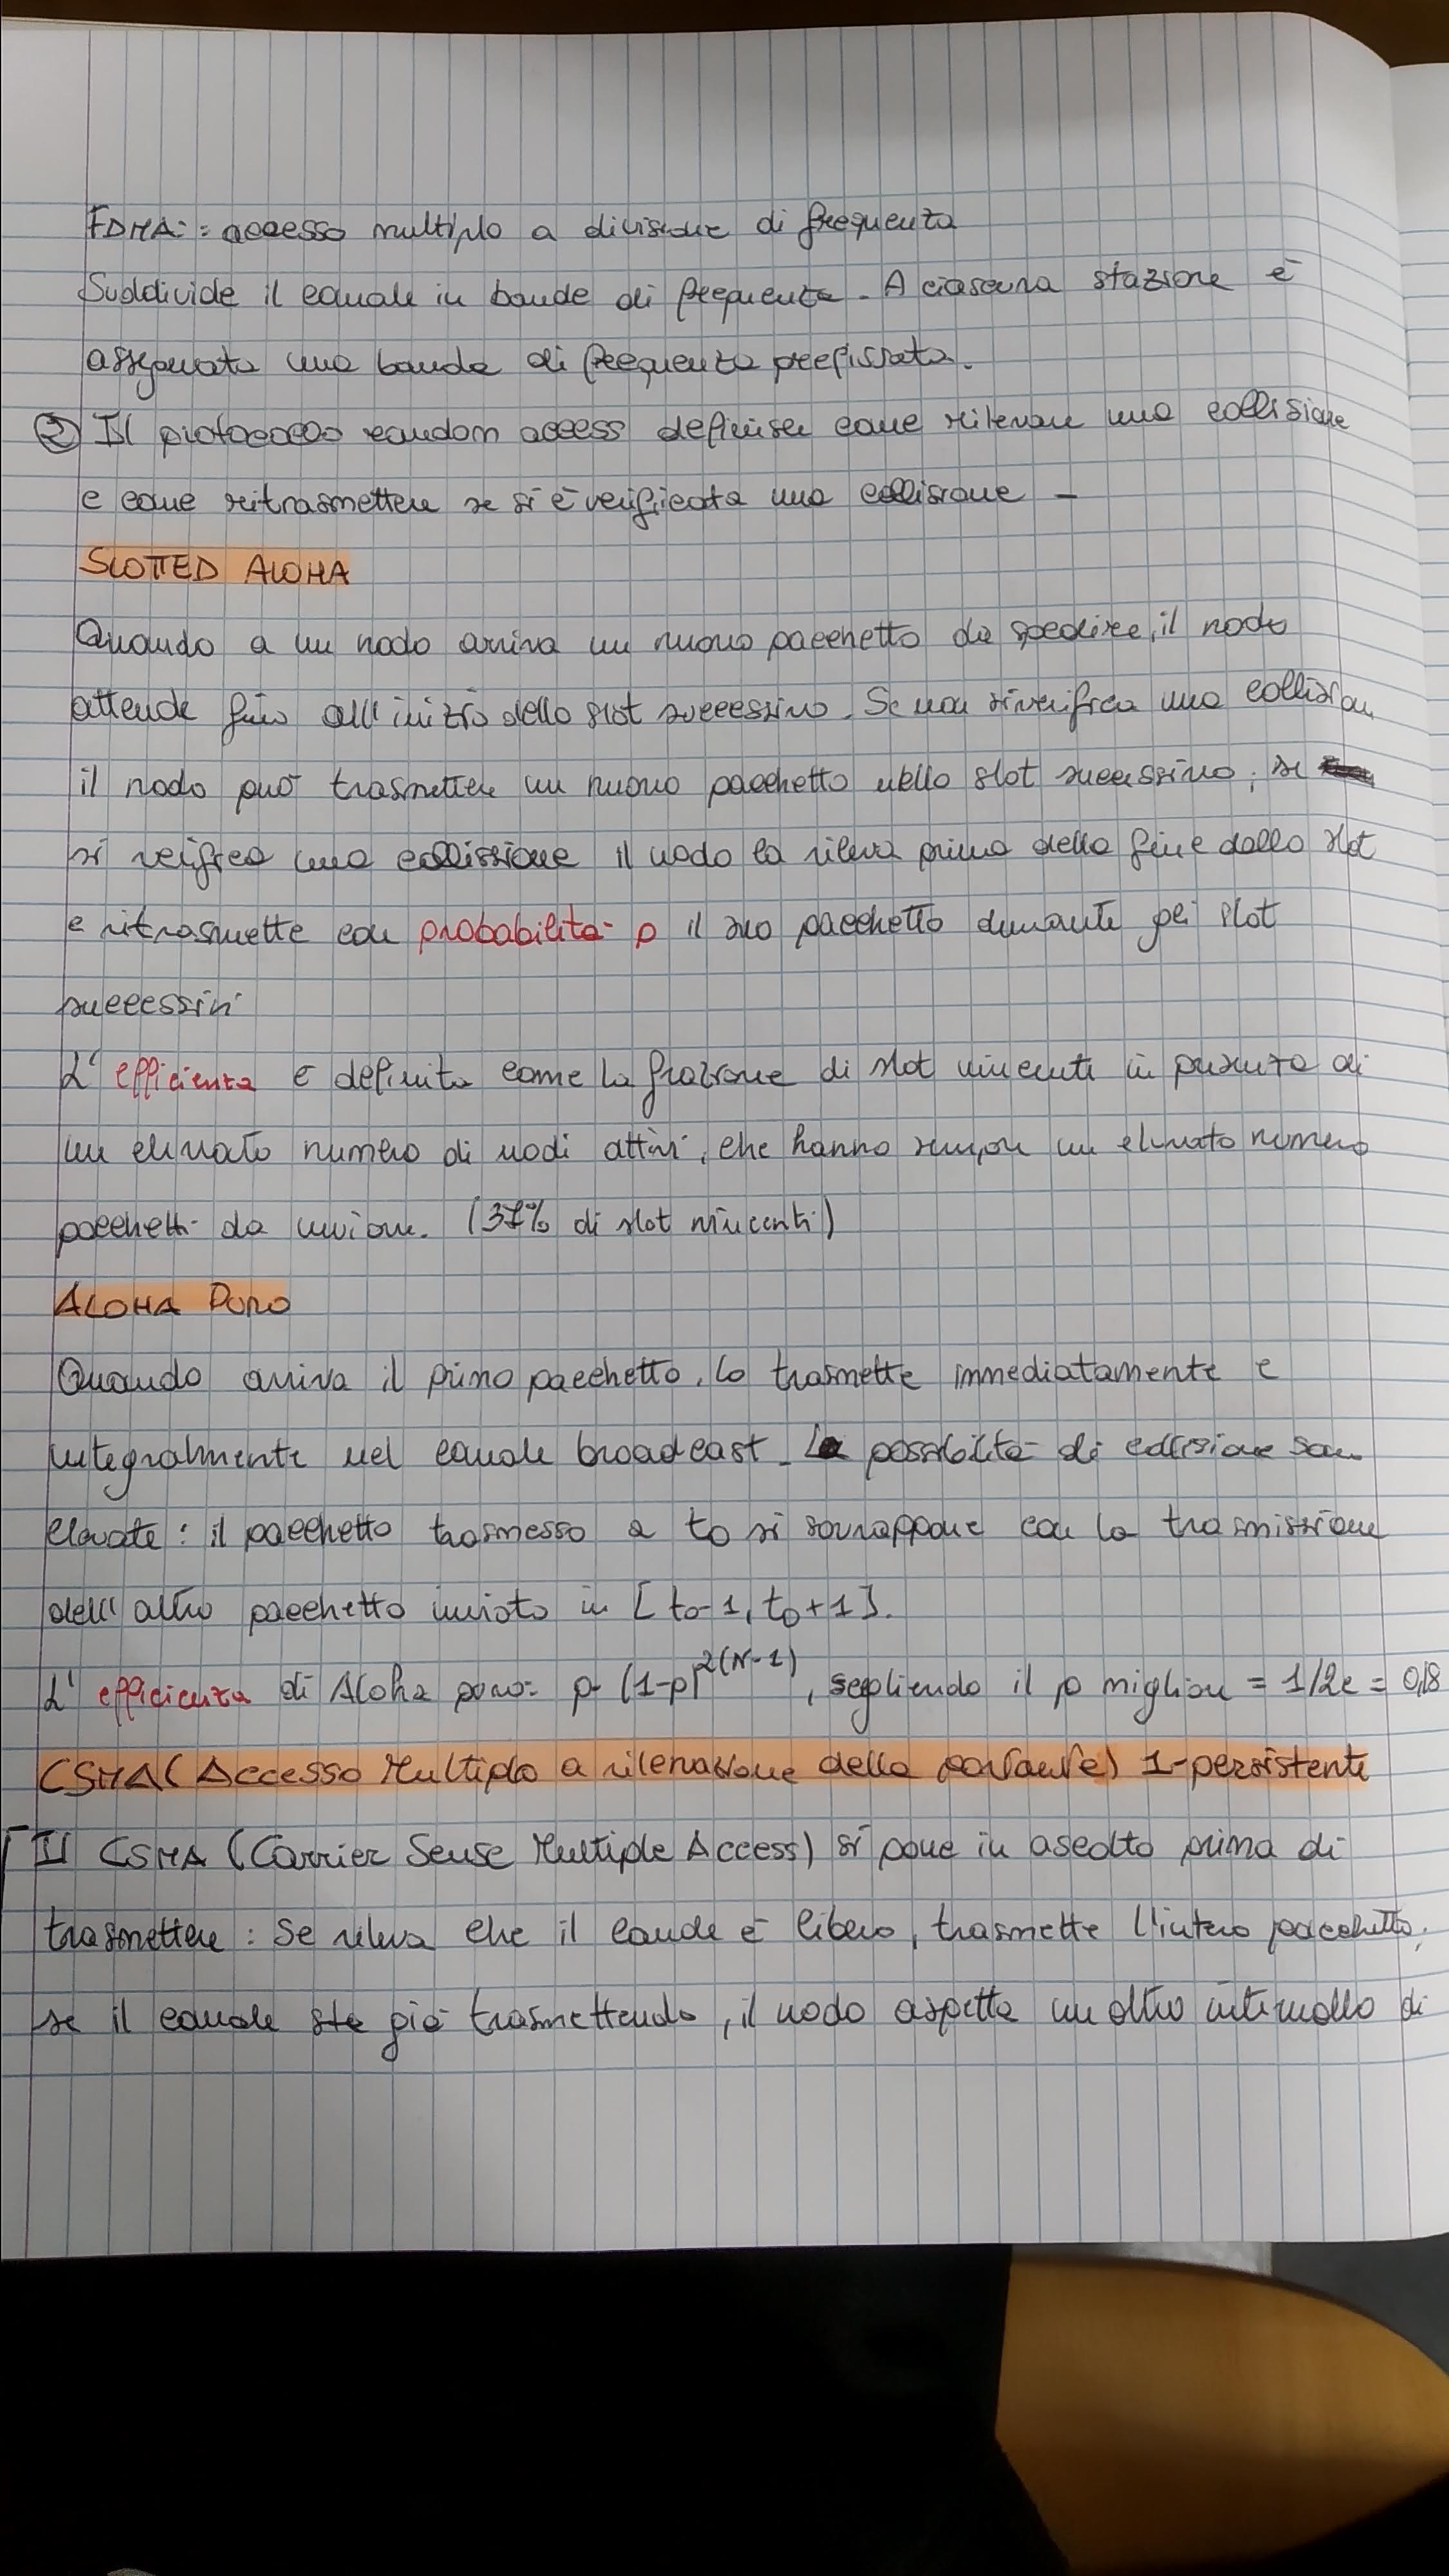 FDMA: : accesso multiplo a divisione di frequenza
Suddivide il canale in bande di frequenza. A ciascuna stazione è
assegnata una banda di frequenza prefissata.
② Il protocollo random access definisce come rilevare una collisione
e come ritrasmettere se si è verificata una collisione -
SLOTTED ALOHA
Quando a un nodo arriva un nuovo pacchetto da spedire, il nodo
attende fino all'inizio dello slot successivo. Se non si verifica una collisione,
il nodo può trasmettere un nuovo pacchetto nello slot successivo; se
si verifica una collissione il nodo la rileva prima della fine dello slot
e ritrasmette con probabilità p il suo pacchetto durante gli slot
successivi
L'efficienza è definita come la frazione di slot vincenti in presenza di
un elevato numero di nodi attivi, che hanno sempre un elevato numero
pacchetti da inviare. (37% di slot vincenti)
ALOHA PURO
Quando arriva il primo pacchetto, lo trasmette immediatamente e
integralmente nel canale broadcast. La possibilità di collisione sono
elevate: il pacchetto trasmesso a to si sovrappone con la trasmissione
dell'altro pacchetto inviato in [to-1, to+1].
L'efficienza di Aloha puro: p (1-p)^2(N-1), scegliendo il p migliore = 1/2e = 0,18
CSMA (Accesso Multiplo a rilevazione della portante) 1-persistente
Il CSMA (Carrier Sense Multiple Access) si pone in ascolto prima di
trasmettere: Se rileva che il canale è libero, trasmette l'intero pacchetto;
se il canale sta già trasmettendo, il nodo aspetta un altro intervallo di